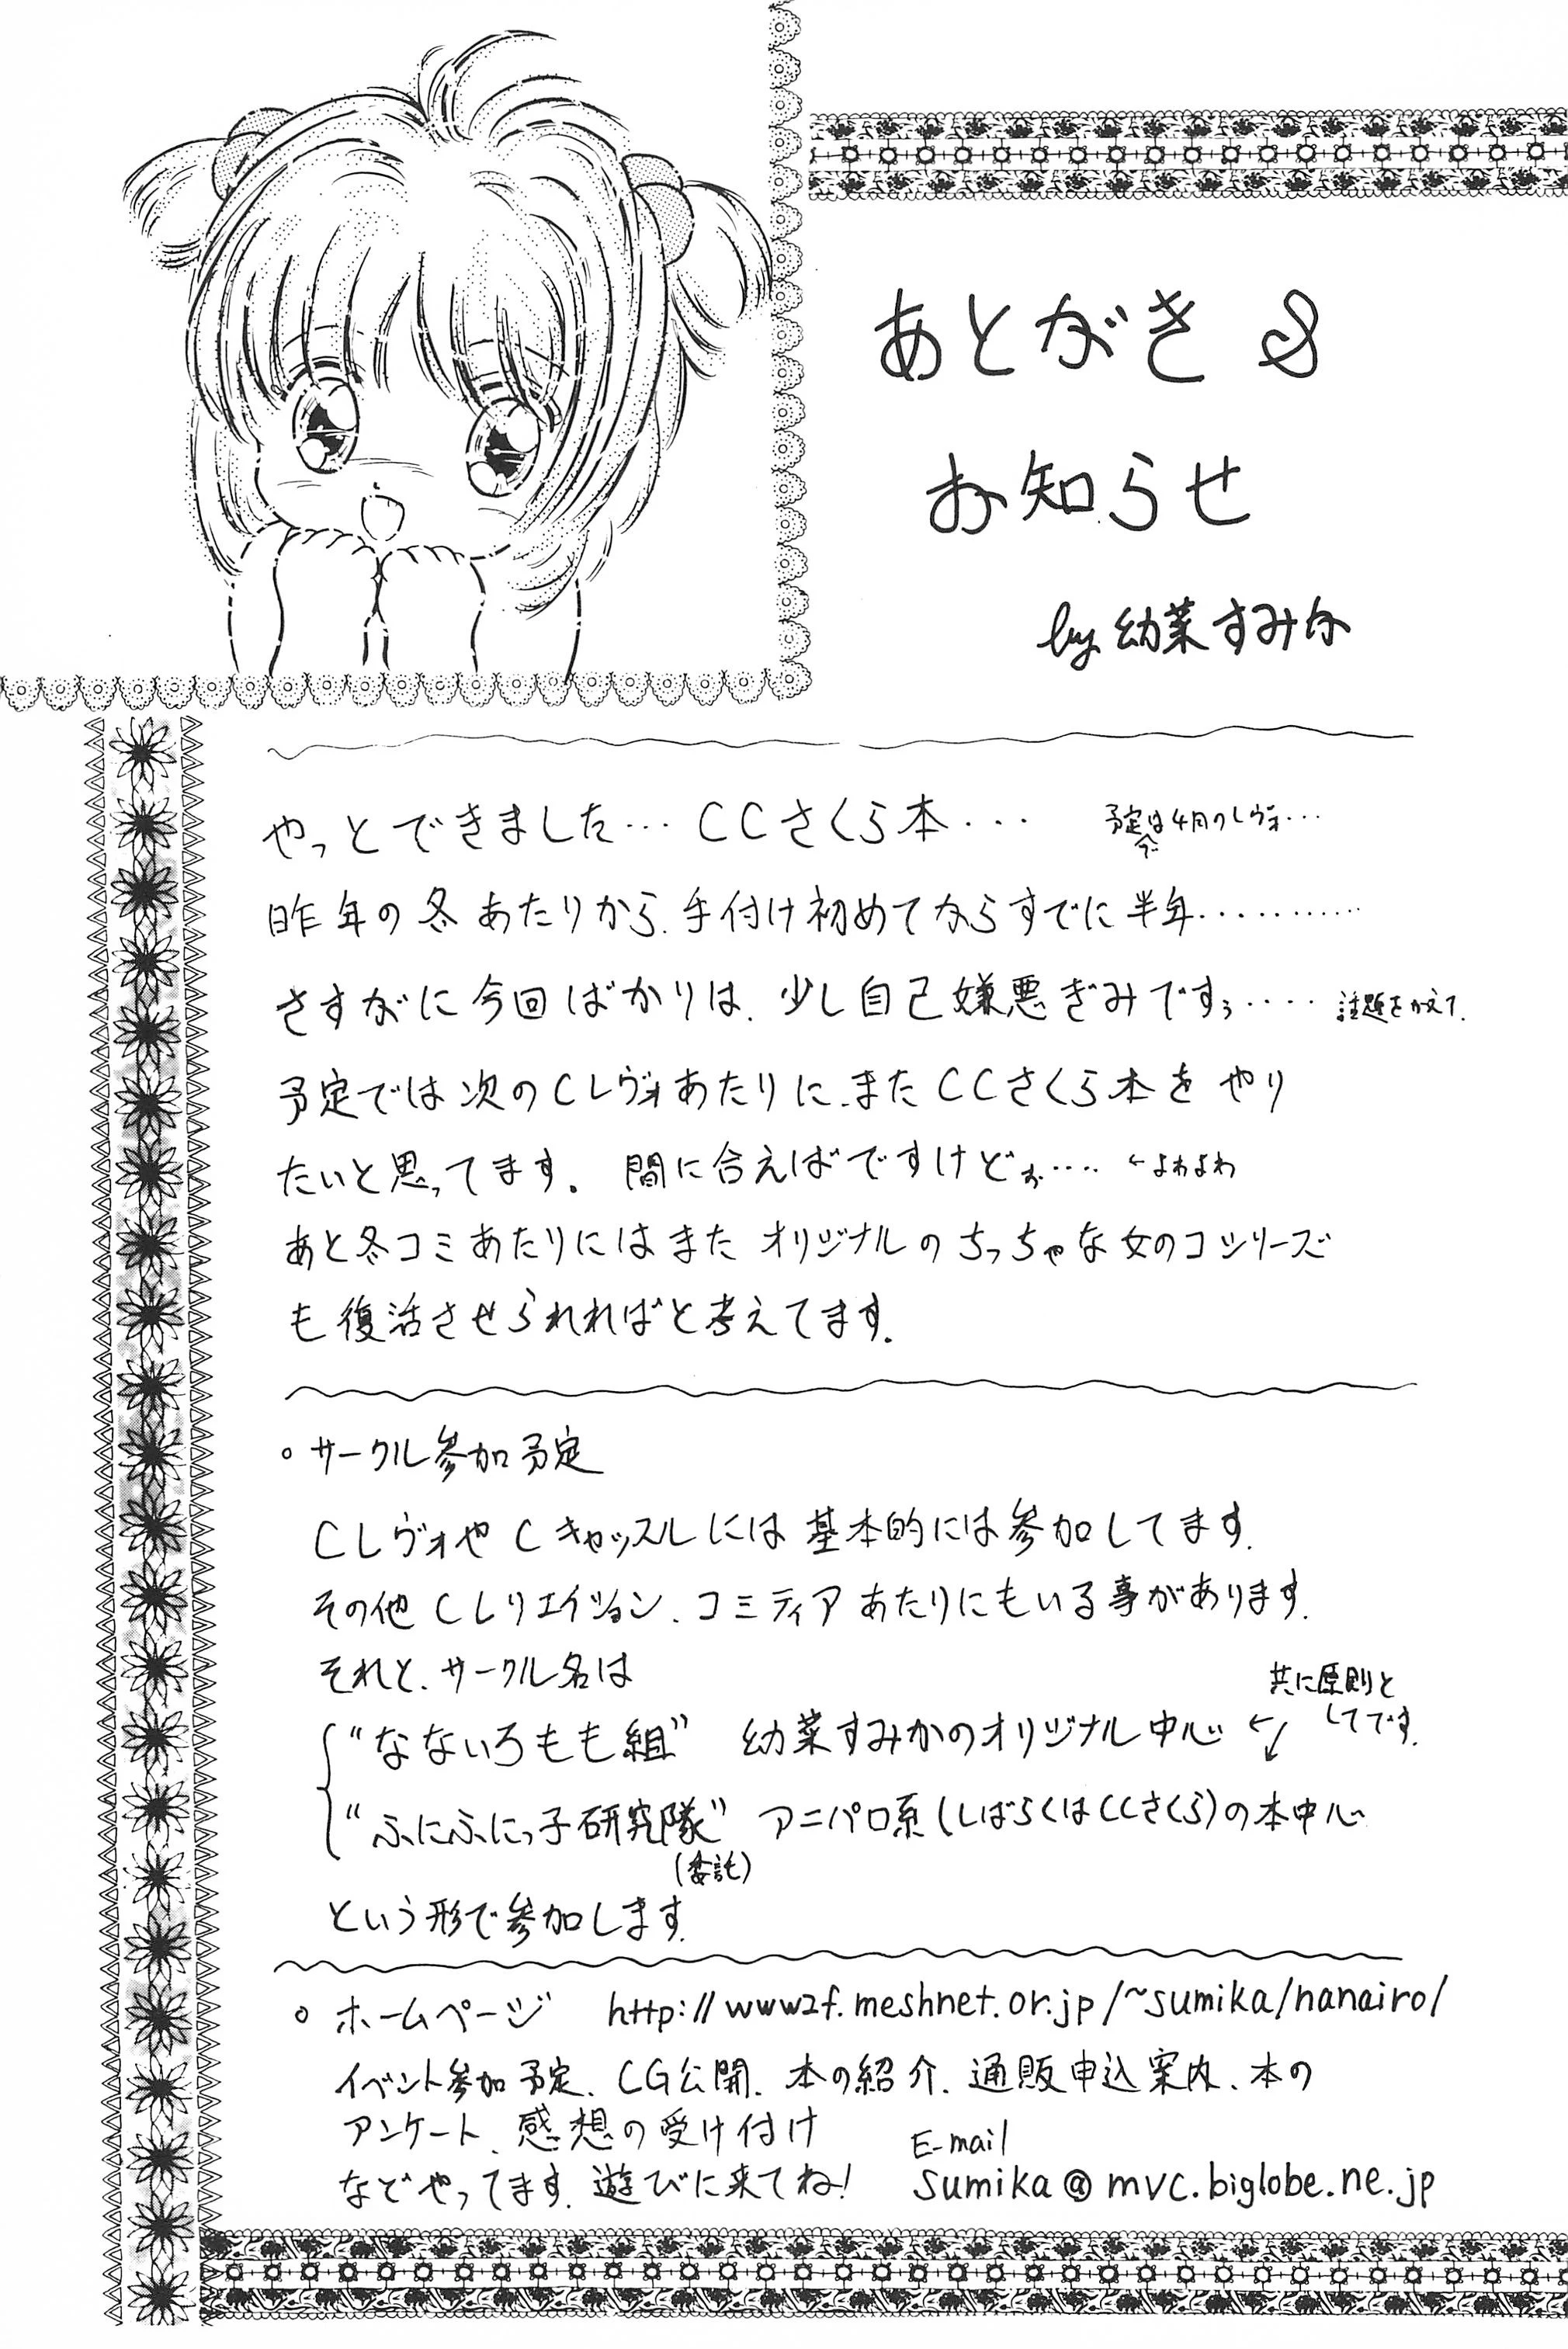 あとがき &
お知らせ
by 幼菜すみか
やっとできました… CCさくら本… 予定では4月のレヴォ…
昨年の冬あたりから、手付け初めてからすでに半年…………
さすがに今回ばかりは、少し自己嫌悪ぎみですぅ…. 話題をかえて、
予定では次のCレヴォあたりに、またCCさくら本をやり
たいと思ってます。間に合えばですけどぉ…. ←よわよわ
あと冬コミあたりにはまたオリジナルのちっちゃな女のコシリーズ
も復活させられればと考えてます。
○ サークル参加予定
CレヴォやCキャッスルには基本的には参加してます。
その他Cレリエイション、コミティアあたりにもいる事があります。
それと、サークル名は
"なないろもも組" 幼菜すみかのオリジナル中心 ← 共に原則と
してです。
"ふにふにっ子研究隊" アニパロ系(しばらくはCCさくら)の本中心
(委託)
という形で参加します。
○ ホームページ http://www2f.meshnet.or.jp/~sumika/nanairo/
イベント参加予定、CG公開、本の紹介、通販申込案内、本の
アンケート、感想の受け付け
などやってます。遊びに来てね!
E-mail
sumika@mvc.biglobe.ne.jp